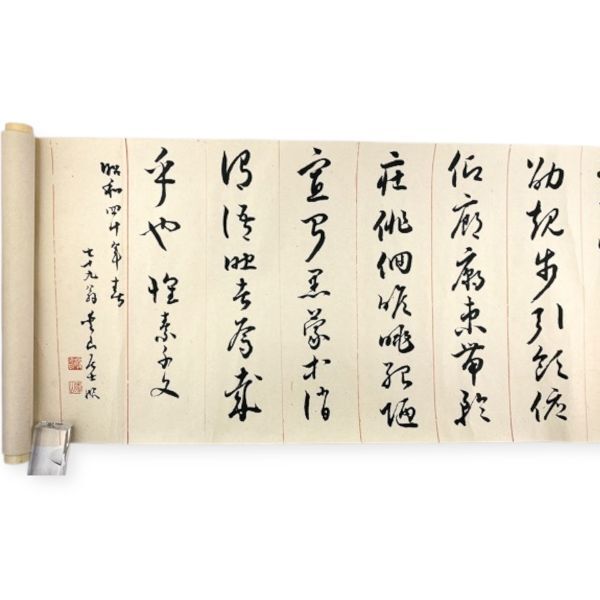 劭矩步引領俯
仰廊廟束帶矜
莊徘徊瞻眺孤陋
寡聞愚蒙等誚
謂語助者焉哉
乎也 懷素千文
昭和四十年春
七十九翁 山居士